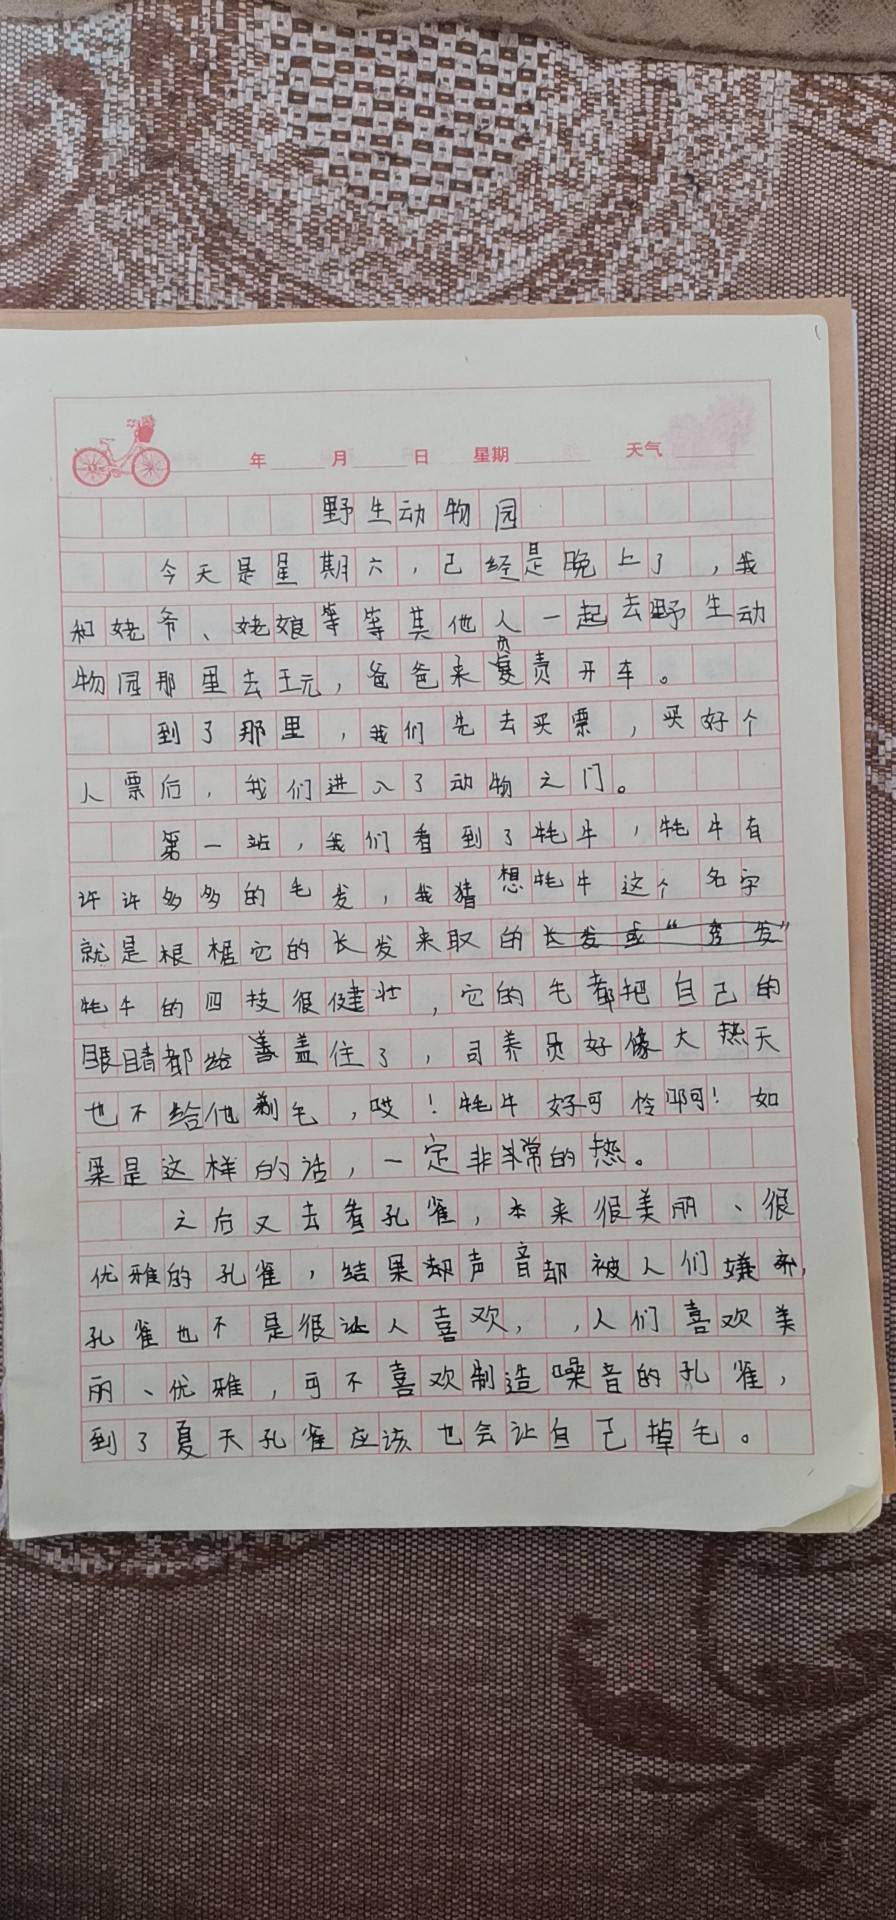 年 月 日 星期 天气
野生动物园
今天是星期六，已经是晚上了，我
和姥爷、姥娘等等其他人一起去野生动
物园那里去玩，爸爸来负责开车。
到了那里，我们先去买票，买好个
人票后，我们进入了动物之门。
第一站，我们看到了牦牛，牦牛有
许许多多的毛发，我猜想牦牛这个名字
就是根椐它的长发来取的长发或“秀发”
牦牛的四技很健壮，它的毛都把自己的
眼睛都给盖住了，司养员好像大热天
也不给他剃毛，哎！牦牛好可怜啊！如
果是这样的话，一定非常的热。
之后又去看孔雀，本来很美丽、很
优雅的孔雀，结果却声音却被人们嫌弃，
孔雀也不是很让人喜欢，，人们喜欢美
丽、优雅，可不喜欢制造噪音的孔雀，
到了夏天孔雀应该也会让自己掉毛。